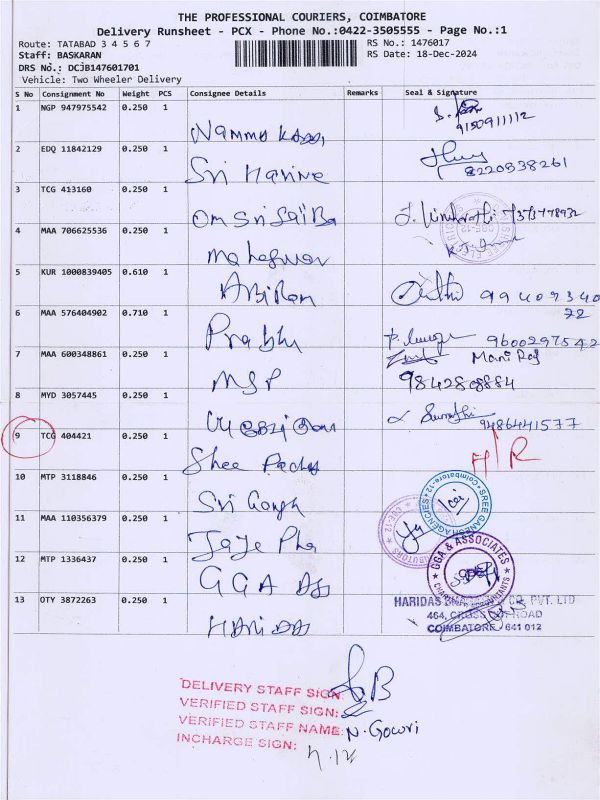 THE PROFESSIONAL COURIERS, COIMBATORE
Delivery Runsheet - PCX - Phone No.:0422-3505555 - Page No.:1
Route: TATABAD 3 4 5 6 7
RS No.: 1476017
Staff: BASKARAN
RS Date: 18-Dec-2024
DRS No.: DCJB147601701
Vehicle: Two Wheeler Delivery
S No Consignment No Weight PCS Consignee Details Remarks Seal & Signature
1 NGP 947975542 0.250 1
9150911112
2 EDQ 11842129 0.250 1 Sri Harine
8220838261
3 TCG 413160 0.250 1 Om Sri Sai Ba
4 MAA 706625536 0.250 1 Maheswar
5 KUR 1000839405 0.610 1 Abi Ram
99409340
72
6 MAA 576404902 0.710 1 Prabhu
9600297542
Mani Raj
7 MAA 600348861 0.250 1 MSP
9842808884
8 MYD 3057445 0.250 1
9486441577
9 TCG 404421 0.250 1 Shee
H/R
10 MTP 3118846 0.250 1 Sri Ganesh
SREE GANESH AGENCIES
coimbatore-12
11 MAA 110356379 0.250 1 Jaye Pha
12 MTP 1336437 0.250 1 GGA As
GGA & ASSOCIATES
13 OTY 3872263 0.250 1 HARIDAS
HARIDAS CO. PVT. LTD
464, CROSS ROAD
COIMBATORE 641 012
DELIVERY STAFF SIGN:
VERIFIED STAFF SIGN:
VERIFIED STAFF NAME: N. Gowri
INCHARGE SIGN: